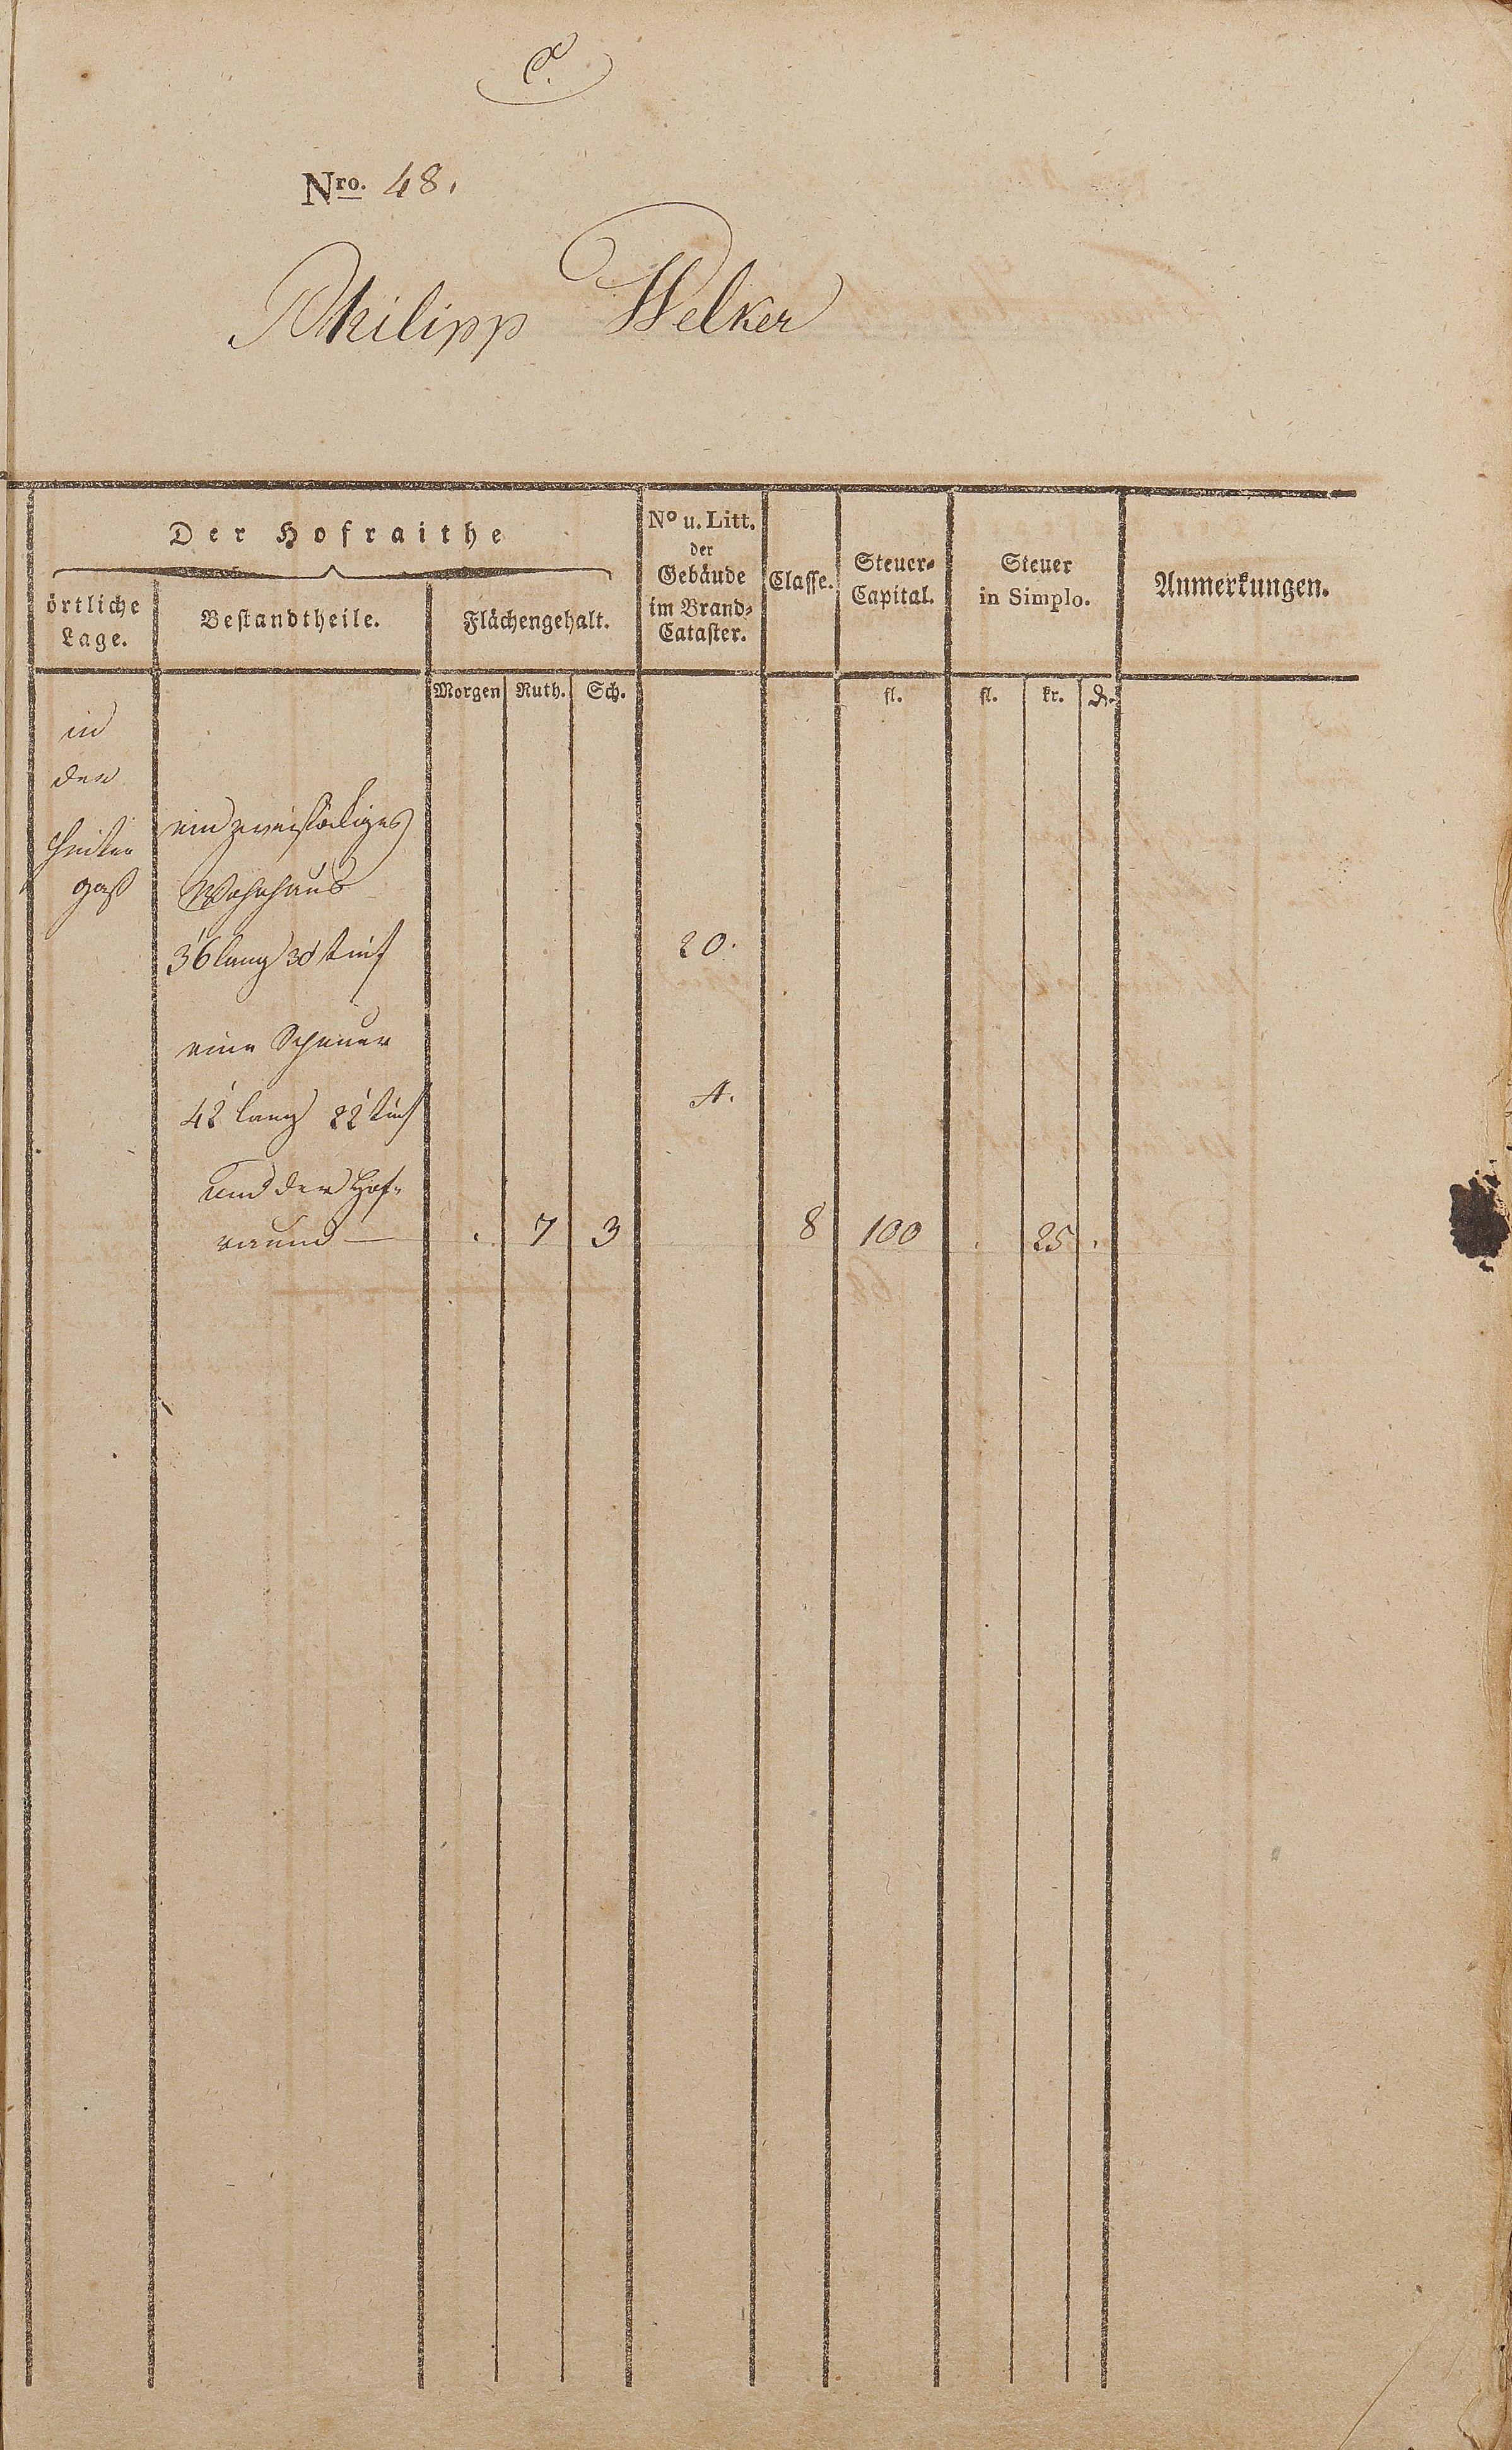 Nro. 48.
Philipp Welker
Der Hofraithe
örtliche
Lage.
Bestandtheile.
Flächengehalt.
No u. Litt.
der
Gebäude
im Brand-
Cataster.
Classe.
Steuer-
Capital.
Steuer
in Simplo.
Anmerkungen.
Morgen Ruth. Sch.
fl.
fl. kr. ₰.
in
der
Hinter
gaß
ein zweistöckiges
Wohnhaus
36' lang 30' tief
20.
eine Scheuer
42' lang 22' tief
A.
und der Hof-
raum — . 7 3 8 100 . 25 .